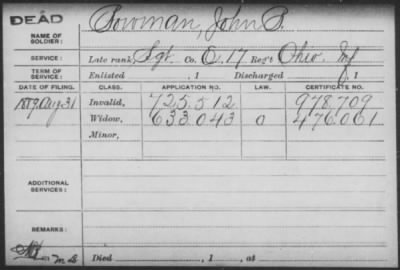 DEAD
NAME OF SOLDIER: Bowman, John B.
SERVICE: Late rank, Sgt. Co. C, 17 Reg't Ohio Inf
TERM OF SERVICE: Enlisted , 1 Discharged , 1
DATE OF FILING. CLASS. APPLICATION NO. LAW. CERTIFICATE NO.
Aug 31 Invalid, 725.512 978.709
Widow, 633.043 a 476.061
Minor,
ADDITIONAL SERVICES:
REMARKS:
Died , 1 , at